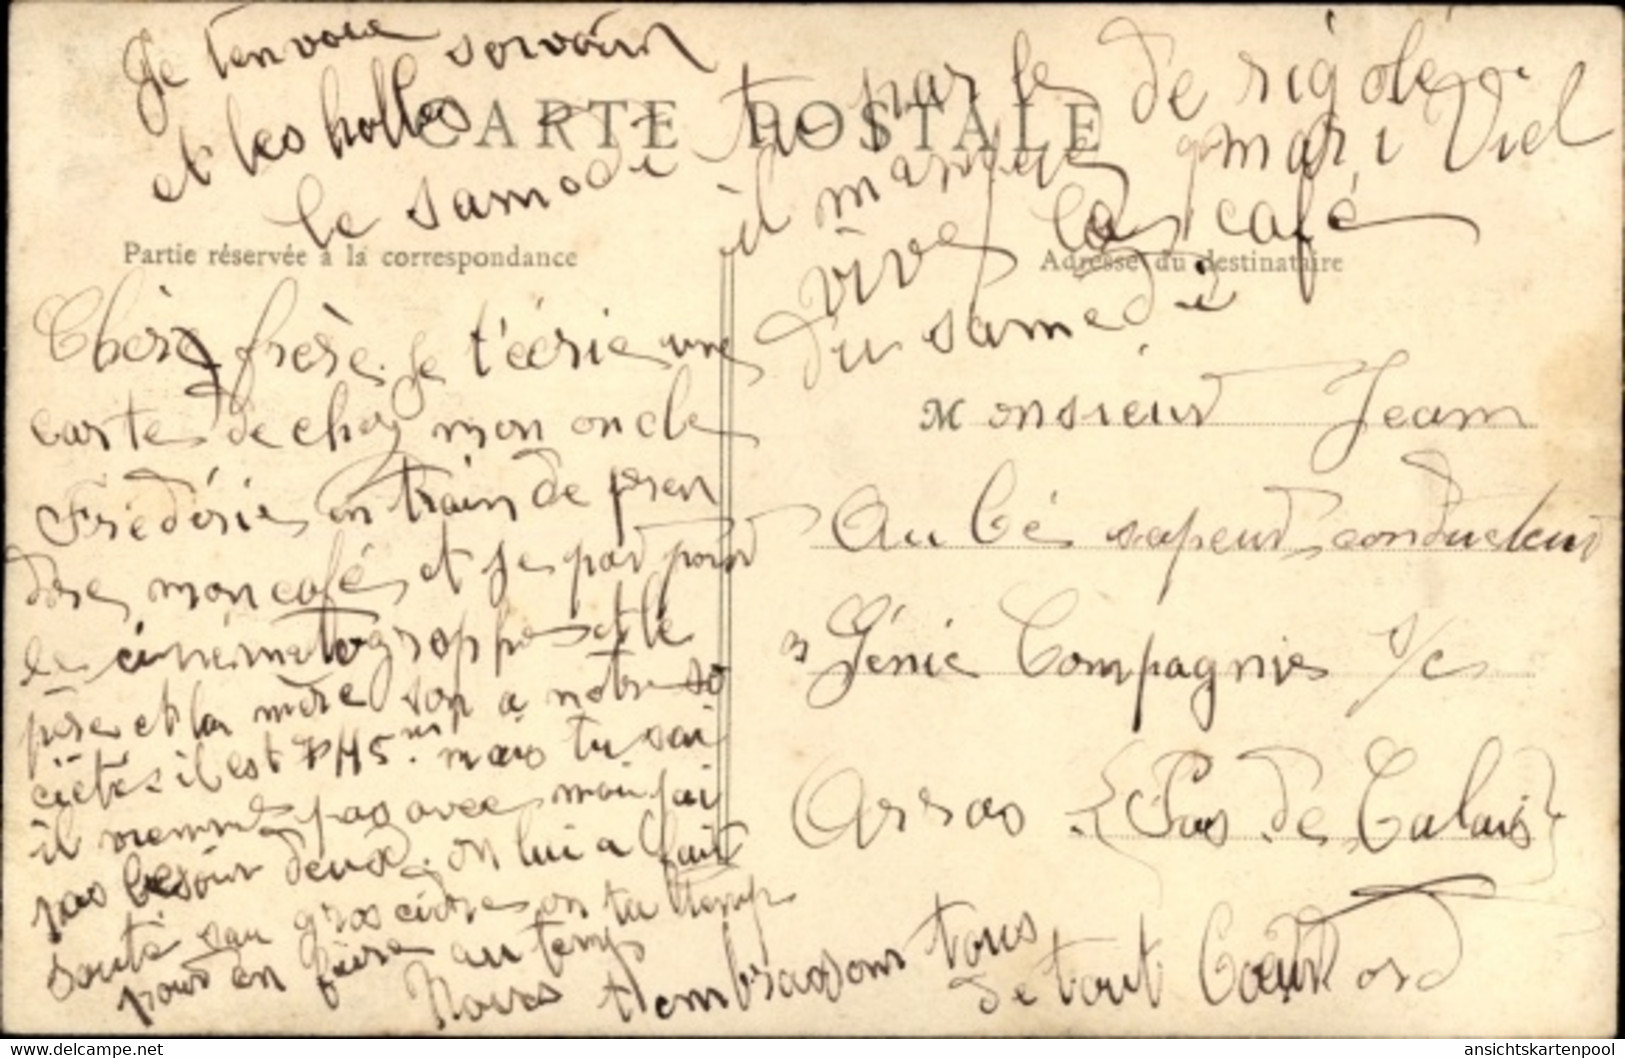 Je t'envoie
et les
le samedi
CARTE POSTALE
tu par le de rigolé
il manque mari Viel
vive le café
du samedi
Partie réservée à la correspondance
Adresse du destinataire
Chère frère. Je t'écrie une
carte de chez mon oncle
Frédéric en train de pren
dre mon café et je par pour
le cinématographe et le
père et la mère son a notre so
ciété il est 7 H 5 mais tu sai
il viennes pas avec moi j'ai
pas besoin deux. on lui a fait
sauté au on ta
pour en faire au temp
Nous t'embrassons tous
de tout Coeur
Monsieur Jean
Aubé sapeur conducteur
3 Génie Compagnie
Arras (Pas de Calais)
www.delcampe.net
ansichtskartenpool